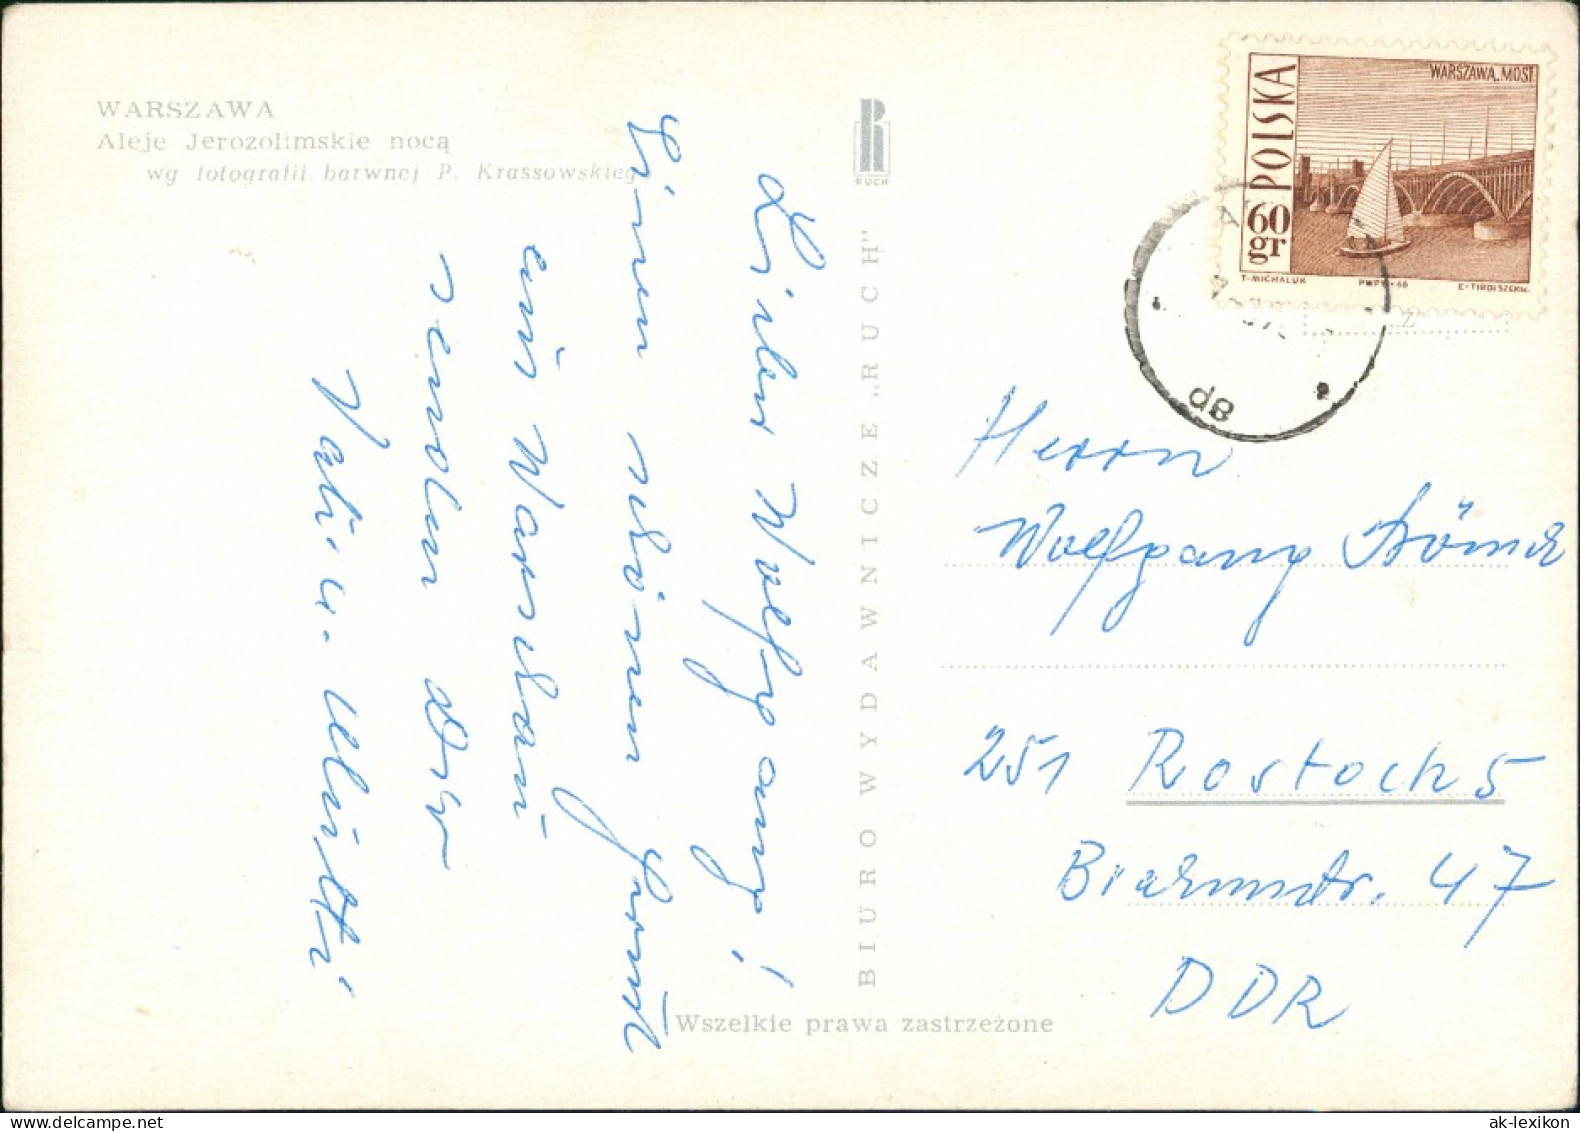 WARSZAWA
Aleje Jerozolimskie nocą
wg fotografii barwnej P. Krassowskieg
RUCH
BIURO WYDAWNICZE „RUCH"
Wszelkie prawa zastrzeżone
POLSKA
60 gr
WARSZAWA..MOST
T-MICHALUK PWPW-66 E-TIRDISZEKIC
Z
d8
Lieber Wolfgang!
Einen schönen Gruß
aus Warschau
senden Dir
Vati u. Mutti
Herrn
Wolfgang
251 Rostock 5
47
DDR
ak-lexikon